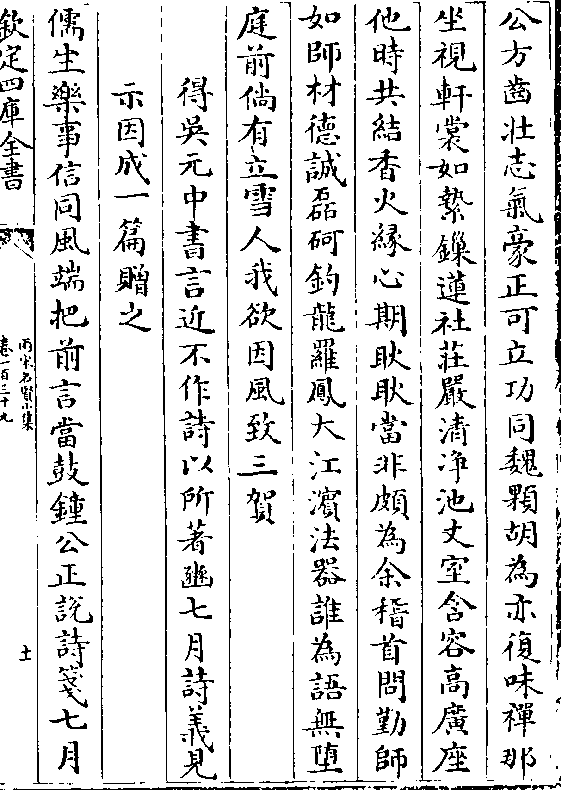 公方齒壯志氣豪正可立功同魏顆胡為亦復味禪那
坐視軒裳如縶鏁蓮社莊嚴清淨池丈室含容高廣座
他時共結香火緣心期耿耿當非頗為余稽首問勤師
如師材德誠磊砢釣龍羅鳳大江濵法器誰為語無墮
庭前倘有立雪人我欲因風致三賀
得吳元中書言近不作詩以所著豳七月詩義見
示因成一篇贈之
儒生樂事信同風端把前言當鼓鐘公正說詩箋七月
欽定四庫全書
兩宋名賢小集
卷一百三十九
土